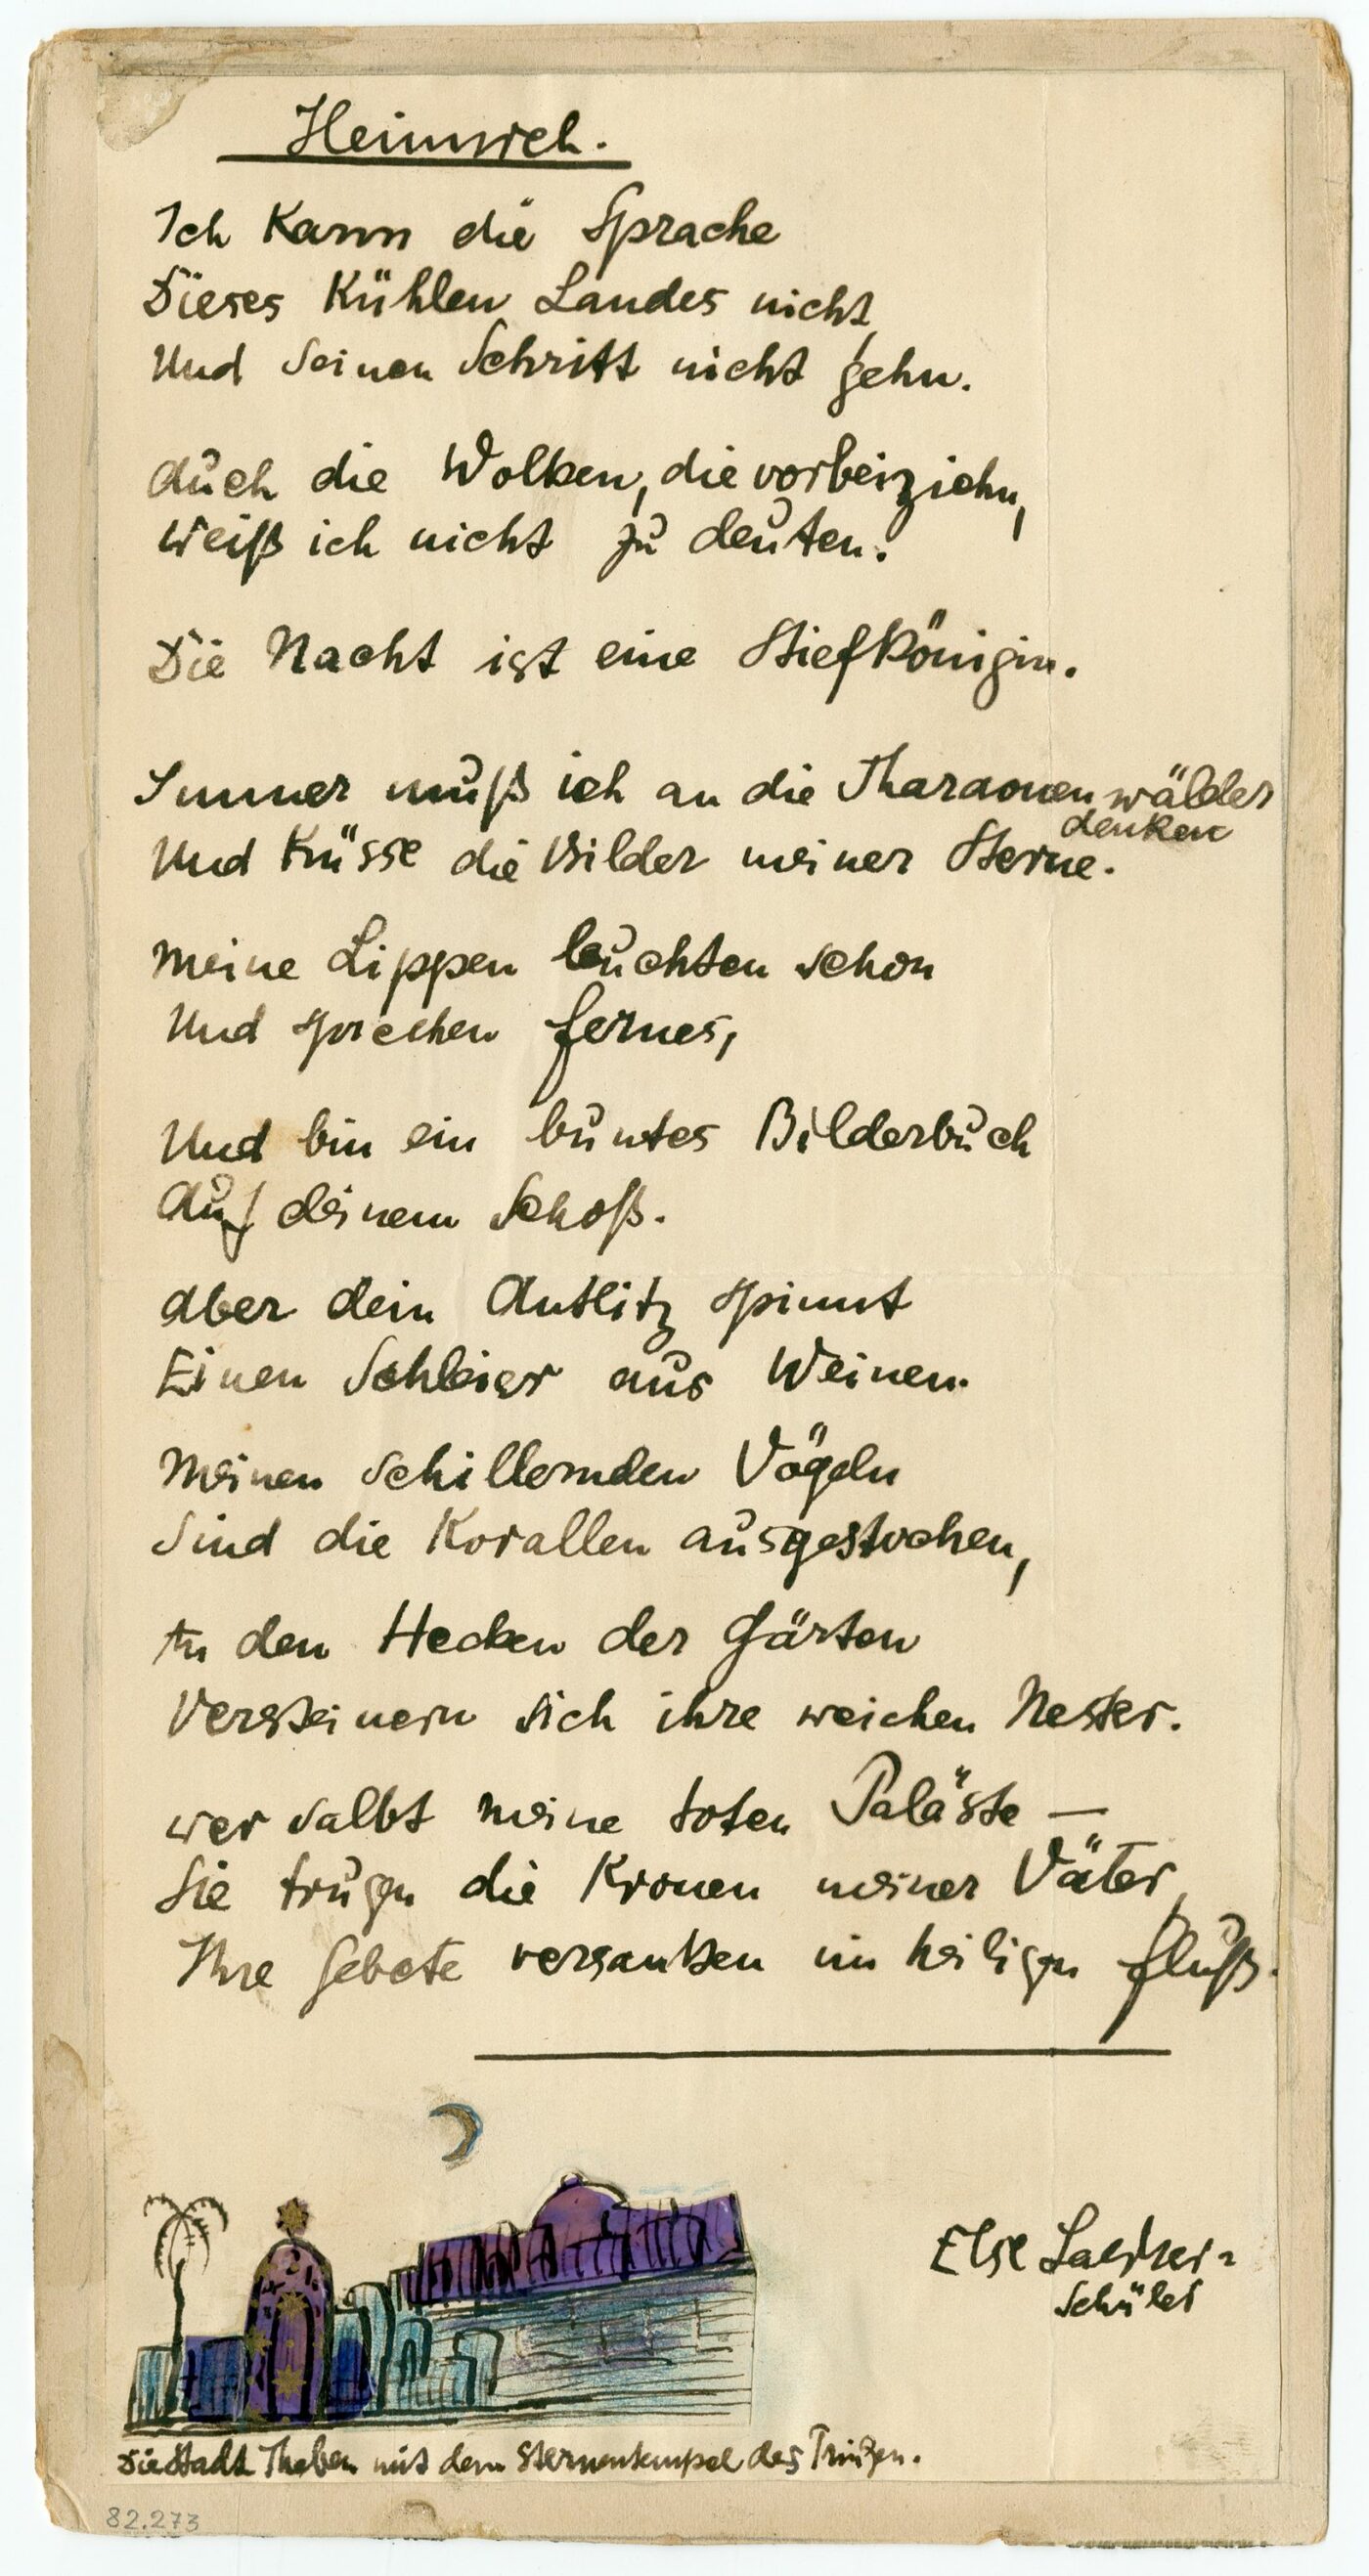 Heimweh.
Ich kann die Sprache
Dieses kühlen Landes nicht,
Und seinen Schritt nicht gehn.
Auch die Wolken, die vorbeiziehn,
Weiß ich nicht zu deuten.
Die Nacht ist eine Stiefkönigin.
Immer muß ich an die Pharaonenwälder
denken
Und küsse die Bilder meiner Sterne.
Meine Lippen leuchten schon
Und sprechen fernes,
Und bin ein buntes Bilderbuch
Auf deinem Schoß.
Aber dein Antlitz spinnt
Einen Schleier aus Weinen.
Meinen schillernden Vögeln
Sind die Korallen ausgestochen,
An den Hecken der Gärten
Versteinern sich ihre weichen Nester.
Wer salbt meine toten Paläste —
Sie trugen die Kronen meiner Väter,
Ihre Gebete versanken im heiligen Fluß.
Else Lasker-
Schüler
Die Stadt Theben mit dem Sternentempel des Prinzen.
82.273